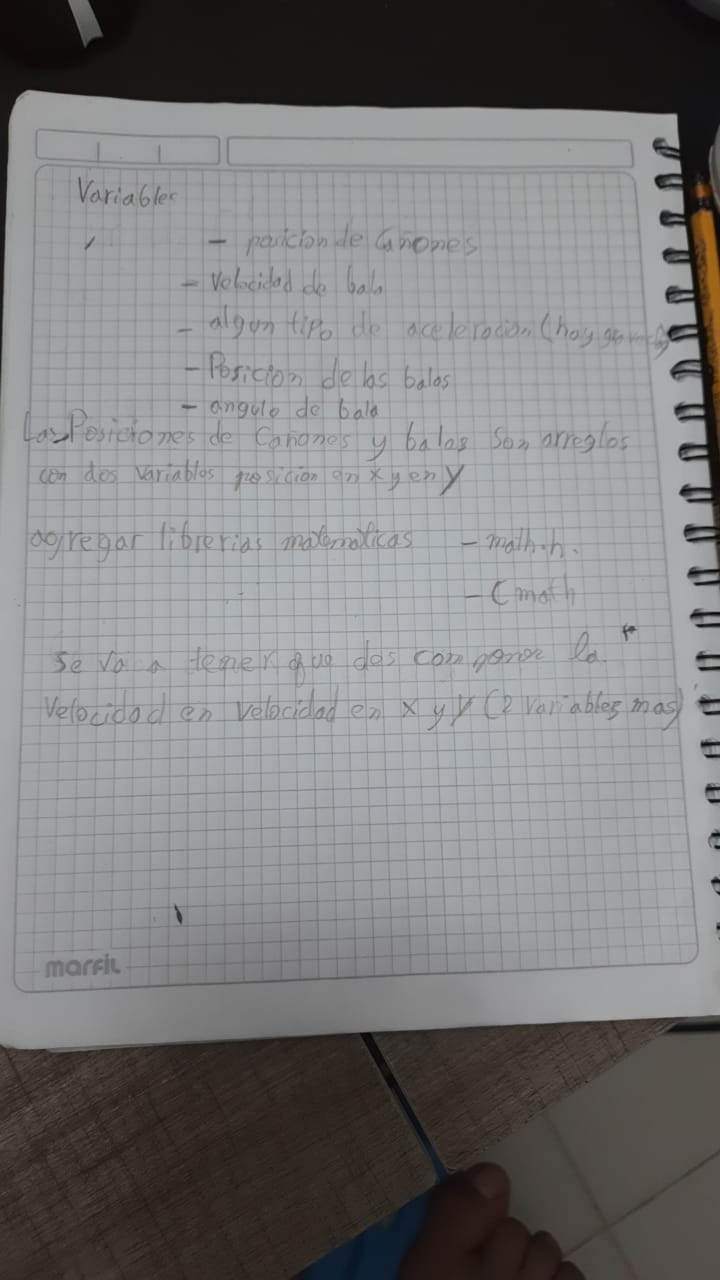 Variables
- posicion de Cañones
- Velocidad de bala
- algun tipo de aceleracion (hay
- Posicion de las balas
- angulo de bala
Las Posiciones de Cañones y balas son arreglos
con dos variables posicion en x y en y
agregar librerias matematicas - math.h.
- Cmath
Se va a tener que des componer la
Velocidad en velocidad en x y y (2 variables mas)
marfil